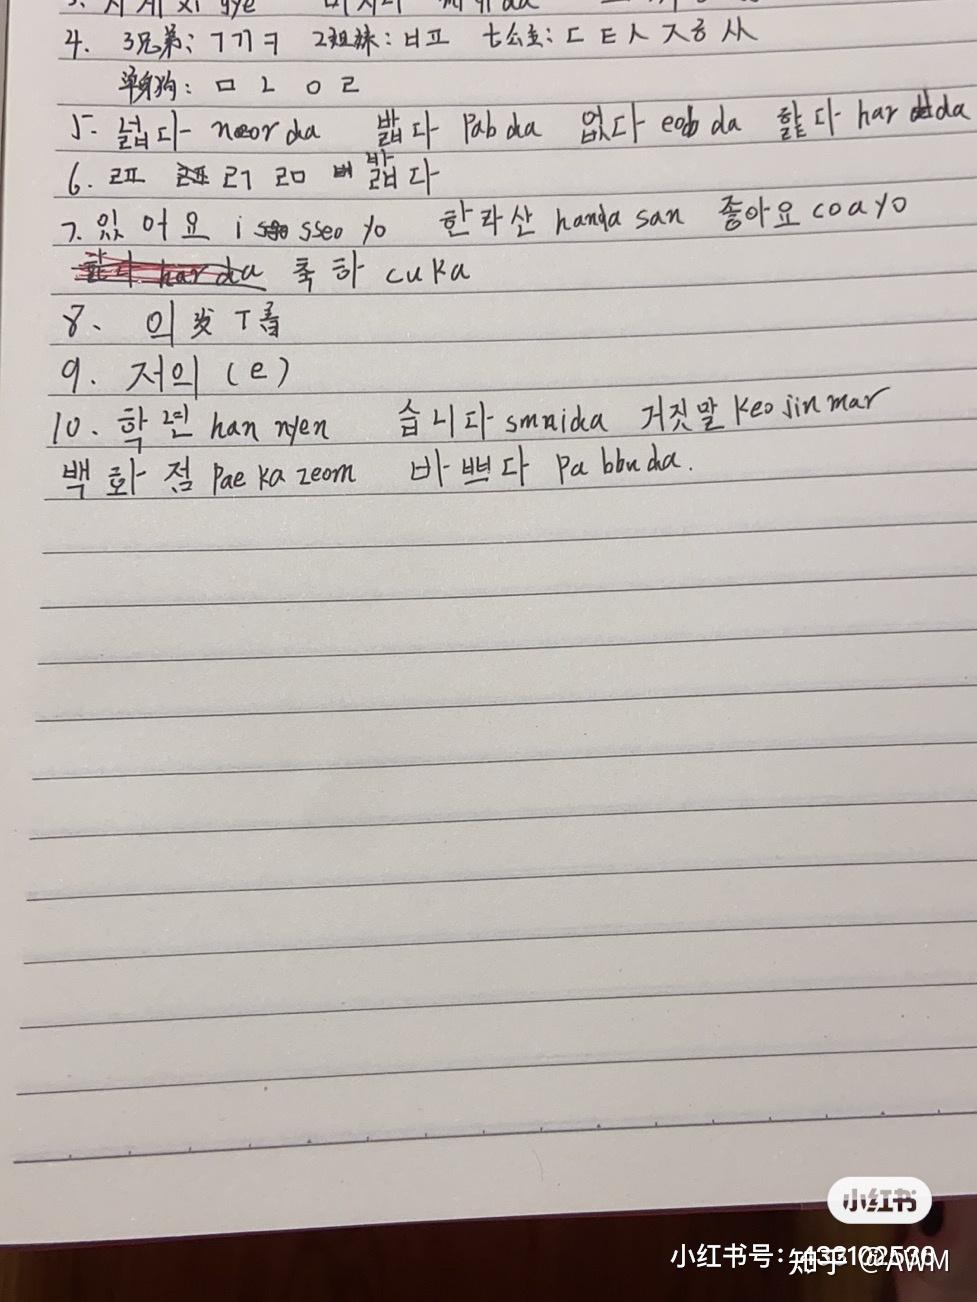 4. 3兄弟: ㄱㄲㅋ 2姐妹: ㅂㅍ 七公主: ㄷㅌㅅㅈㅎㅆ
單身狗: ㅁㄴㅇㄹ
5. 넓다 neorda 밟다 Pabda 없다 eobda 핥다 harda
6. ㄹㅍ ㄹㄱ ㄹㅁ ㅃ 밟다
7. 있어요 i sseo yo 한라산 handa san 좋아요 coayo
축하 cuka
8、 의 发
9. 저의 (e)
10. 학년 han nyen 습니다 smnida 거짓말 Keojinmar
백화점 Pae ka zeom 바쁘다 Pa bbuda.
小红书
小红书号:433102536
知乎 @AWM